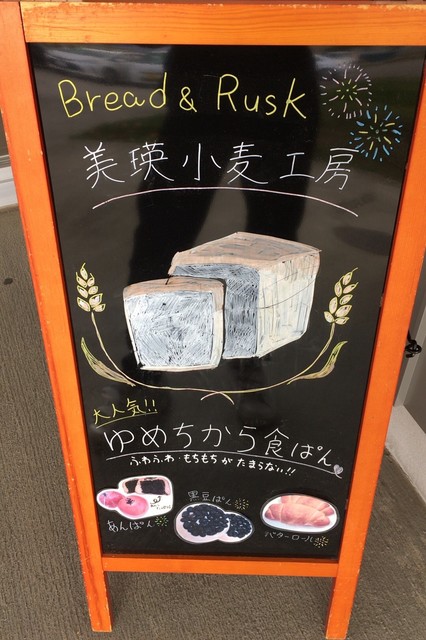 Bread & Rusk
美瑛小麦工房
大人気!!
ゆめちから食ぱん
ふわふわ・もちもちがたまらない!!
あんぱん
黒豆ぱん
バターロール